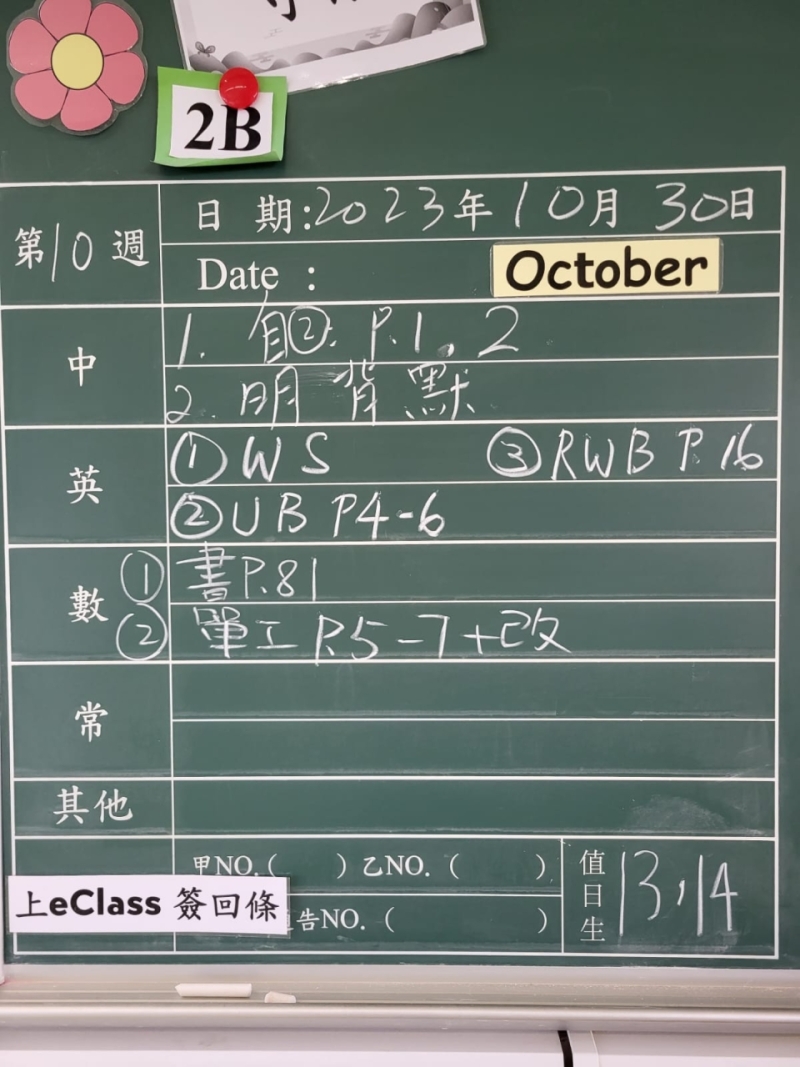 2B
第10週
日 期:2023年10月30日
Date :
October
中
1. 自②. P.1, 2
2. 明 背 默
英
① W S
③ R W B P. 16
② U B P4-6
數
① 書P.81
② 單工 P.5-7+改
常
其他
甲NO.( ) 乙NO. ( )
告NO. ( )
值日生
13,14
上eClass 簽回條